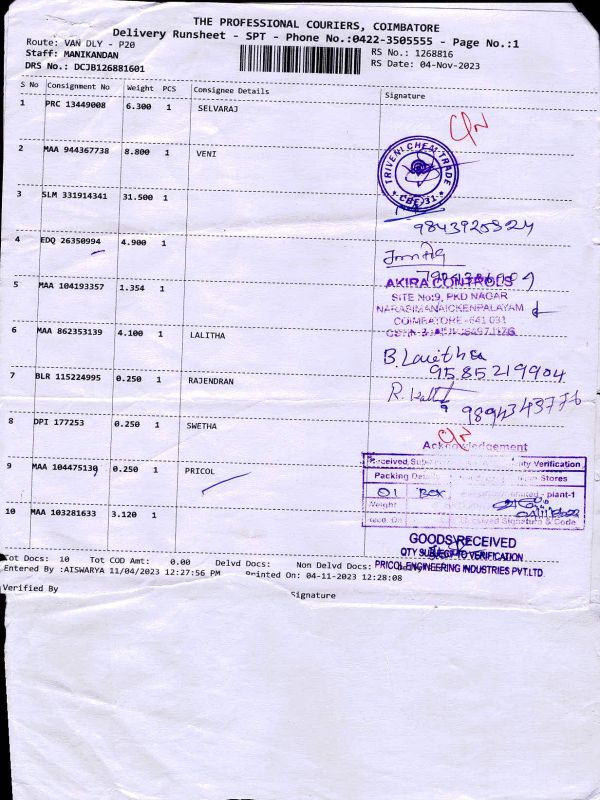 THE PROFESSIONAL COURIERS, COIMBATORE
Delivery Runsheet - SPT - Phone No.:0422-3505555 - Page No.:1
Route: VAN DLY - P20
RS No.: 1268816
Staff: MANIKANDAN
RS Date: 04-Nov-2023
DRS No.: DCJB126881601
S No Consignment No Weight PCS Consignee Details Signature
1 PRC 13449008 6.300 1 SELVARAJ
2 MAA 944367738 8.800 1 VENI
TRIVENI CHEM TRADE
CBE-31
3 SLM 331914341 31.500 1
9843925324
4 EDQ 26350994 4.900 1
AKIRA CONTROLS
5 MAA 104193357 1.354 1
SITE No:9, PKD NAGAR
NARASIMANAICKENPALAYAM
COIMBATORE - 641 031
6 MAA 862353139 4.100 1 LALITHA
B. Lalitha
9585219904
7 BLR 115224995 0.250 1 RAJENDRAN
9894343776
8 DPI 177253 0.250 1 SWETHA
Acknowledgement
9 MAA 104475130 0.250 1 PRICOL
Verification
Packing Stores
01 Box - plant-1
Weight
Received Signature & Code
10 MAA 103281633 3.120 1
GOODS RECEIVED
QTY SUBJECT TO VERIFICATION
PRICOL ENGINEERING INDUSTRIES PVT.LTD.
Tot Docs: 10 Tot COD Amt: 0.00 Delvd Docs: Non Delvd Docs:
Entered By :AISWARYA 11/04/2023 12:27:56 PM Printed On: 04-11-2023 12:28:08
Verified By Signature